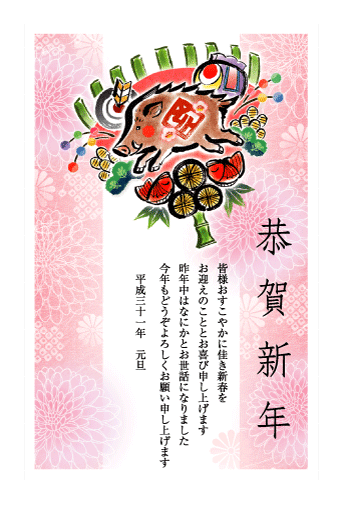 恭賀新年
皆様おすこやかに佳き新春を
お迎えのこととお喜び申し上げます
昨年中はなにかとお世話になりました
今年もどうぞよろしくお願い申し上げます
平成三十一年　元旦